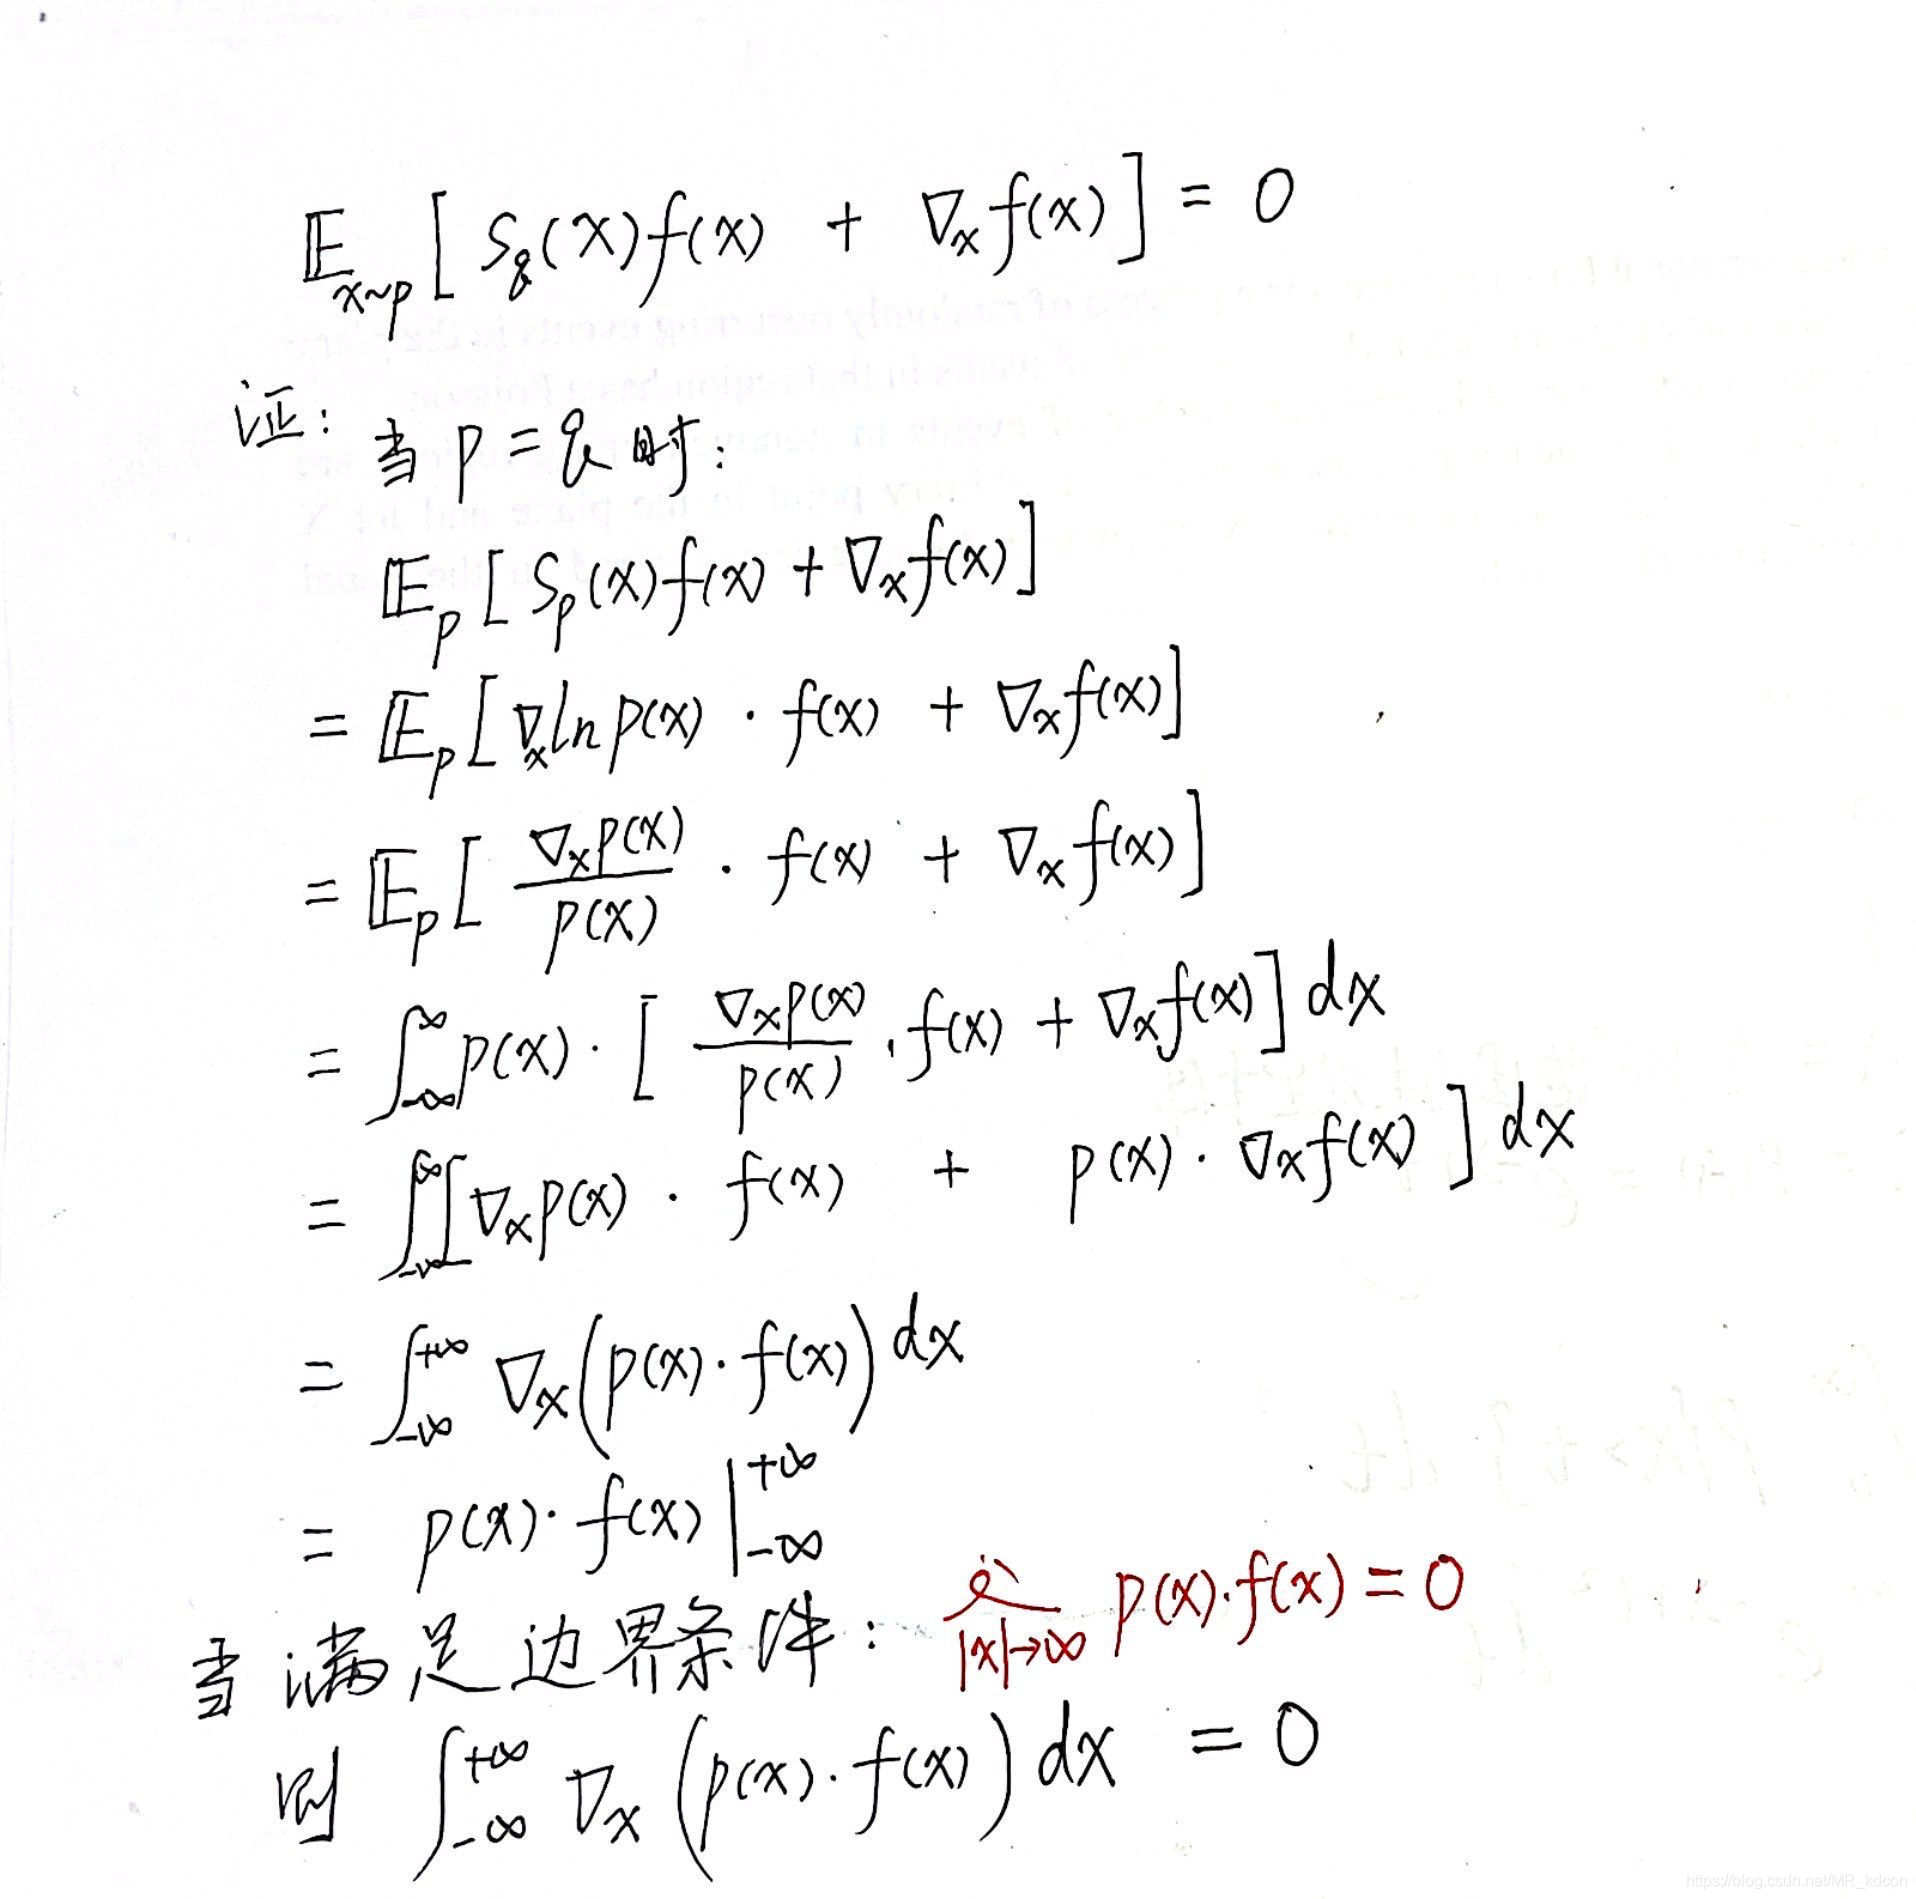 𝔼_{x~p} [ S_q(x) f(x) + ∇_x f(x) ] = 0
证: 当 p = q 时:
𝔼_p [ S_p(x) f(x) + ∇_x f(x) ]
= 𝔼_p [ ∇_x ln p(x) · f(x) + ∇_x f(x) ]
= 𝔼_p [ ∇_x p(x) / p(x) · f(x) + ∇_x f(x) ]
= ∫_{-∞}^{∞} p(x) · [ ∇_x p(x) / p(x) · f(x) + ∇_x f(x) ] dx
= ∫_{-∞}^{∞} [ ∇_x p(x) · f(x) + p(x) · ∇_x f(x) ] dx
= ∫_{-∞}^{+∞} ∇_x ( p(x) · f(x) ) dx
= p(x) · f(x) |_{-∞}^{+∞}
当满足边界条件: |x|→∞ p(x) · f(x) = 0
则 ∫_{-∞}^{+∞} ∇_x ( p(x) · f(x) ) dx = 0
https://blog.csdn.net/MR_kdcon